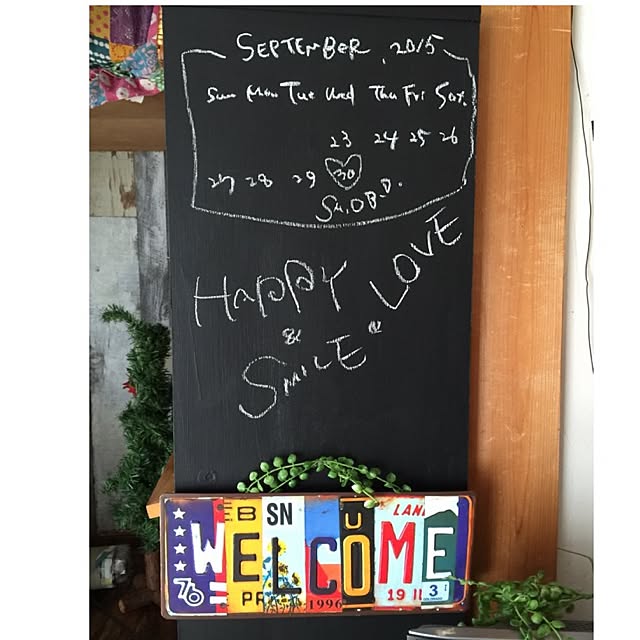 SEPTEMBER, 2015
Sun Mon Tue Wed Thu Fri Sat.
23 24 25 26
27 28 29 30
HAPPY
&
SMILE "LOVE"
B SN U LAN
WELCOME
76 PR 1996 19 11 3